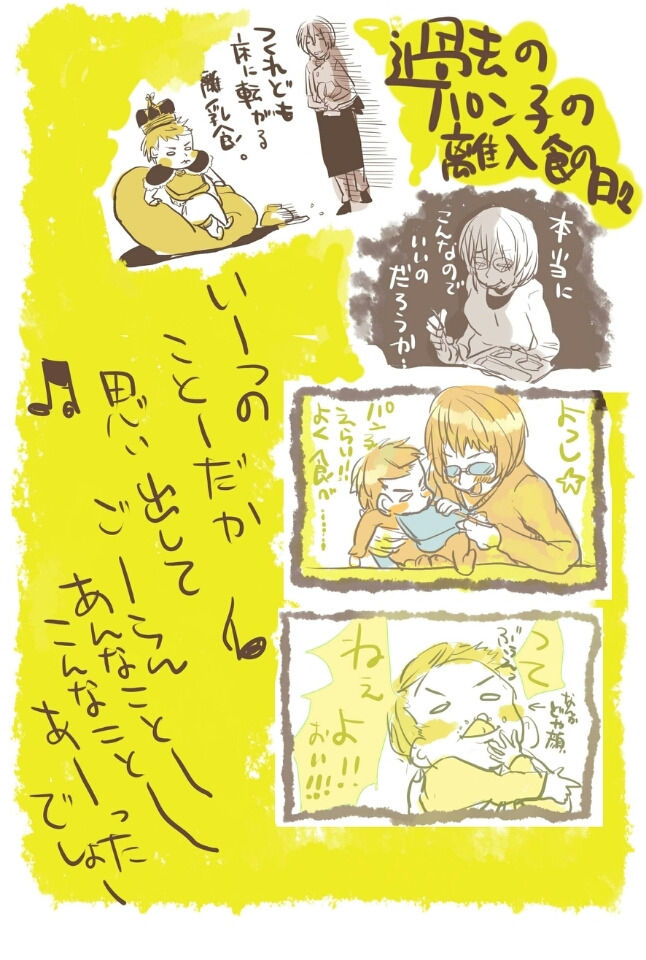 過去の
パン子の
離入食の日々
つくれども
床に転がる
離乳食。
本当に
こんなので
いいの
だろうか…
よっし☆
パン子
えらい!!
よく食べ……!
って
ねぇ
よ!!
おい!!!
なんか
どや顔
いーつの
ことーだか
思い出して
ごーらん
あんなことー
こんなことー
あーった
でしょー